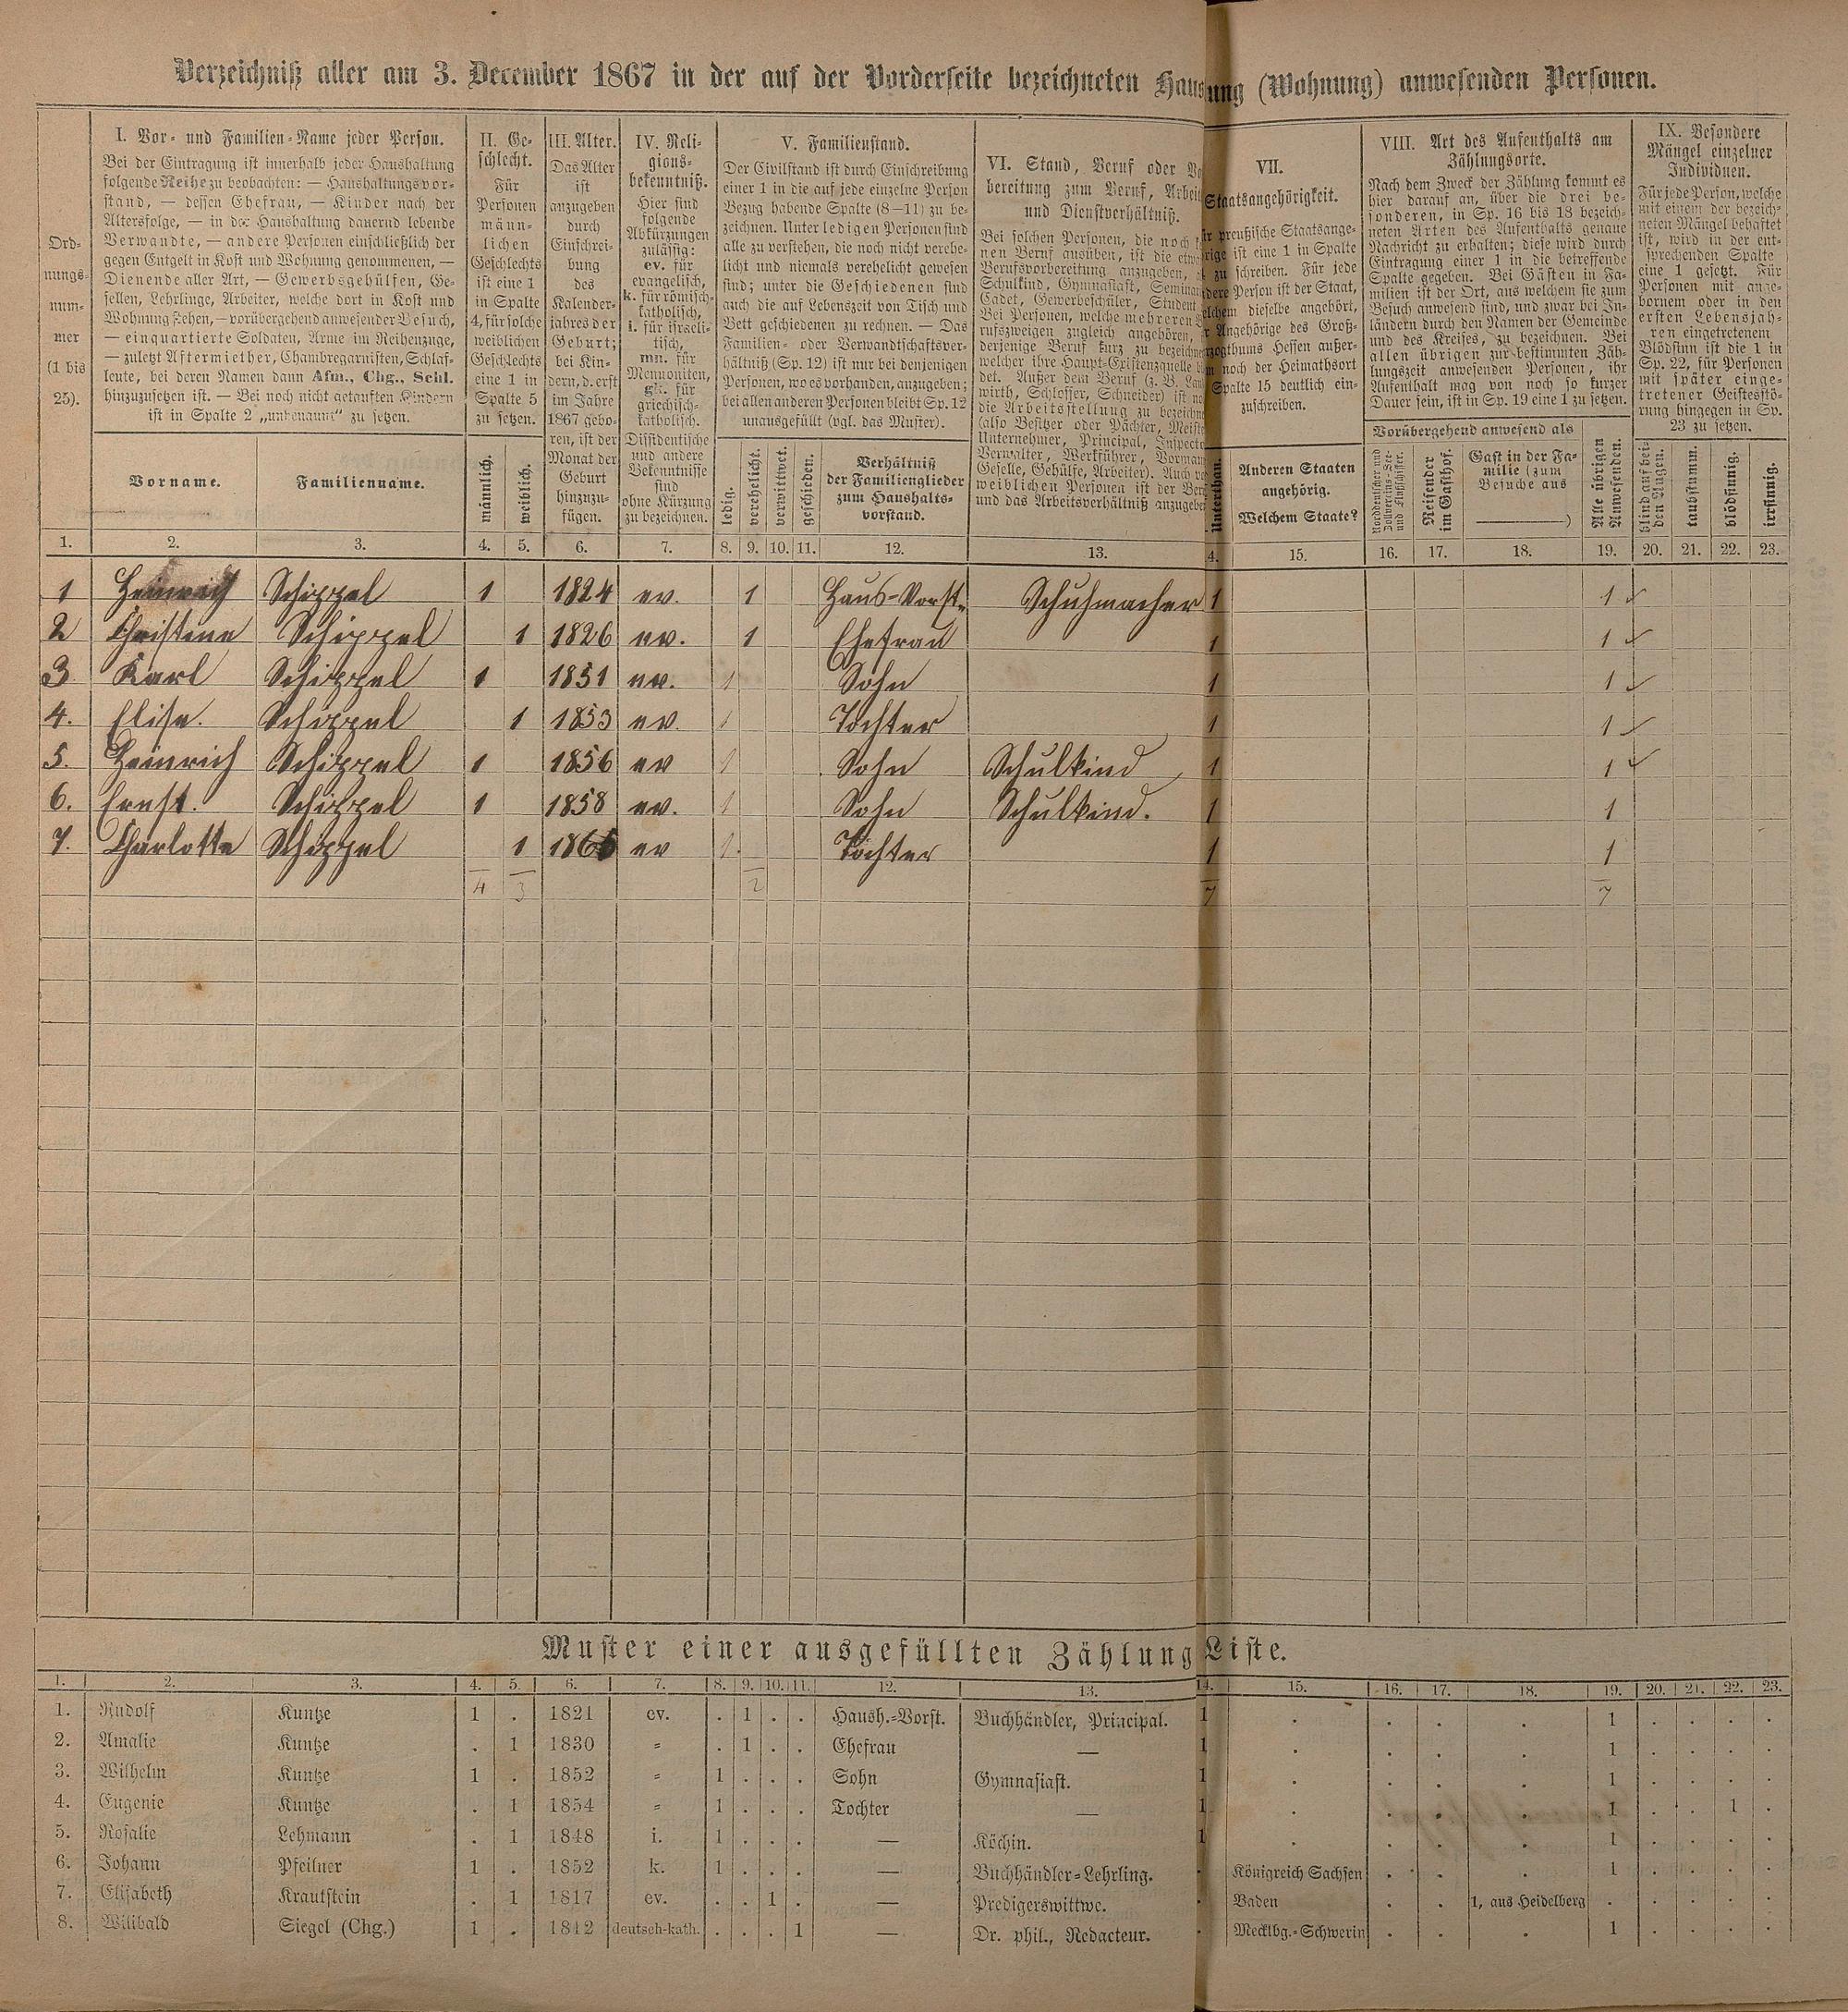 Verzeichniß aller am 3. December 1867 in der auf der Vorderseite bezeichneten Haus ung (Wohnung) anwesenden Personen.
Ord-
nungs-
num-
mer
(1 bis
25).
I. Vor- und Familien-Name jeder Person.
Bei der Eintragung ist innerhalb jeder Haushaltung
folgende Reihe zu beobachten: — Haushaltungsvor-
stand, — dessen Ehefrau, — Kinder nach der
Altersfolge, — in der Haushaltung dauernd lebende
Verwandte, — andere Personen einschließlich der
gegen Entgelt in Kost und Wohnung genommenen, —
Dienende aller Art, — Gewerbsgehülfen, Ge-
sellen, Lehrlinge, Arbeiter, welche dort in Kost und
Wohnung stehen, — vorübergehend anwesender Besuch,
— einquartierte Soldaten, Arme im Reihenzuge,
— zuletzt Aftermiether, Chambregarnisten, Schlaf-
leute, bei deren Namen dann Afm., Chg., Schl.
hinzuzusetzen ist. — Bei noch nicht getauften Kindern
ist in Spalte 2 „unbenannt“ zu setzen.
Vorname.
Familienname.
II. Ge-
schlecht.
Für
Personen
männ-
lichen
Geschlechts
ist eine 1
in Spalte
4, für solche
weiblichen
Geschlechts
eine 1 in
Spalte 5
zu setzen.
männlich.
weiblich.
III. Alter.
Das Alter
ist
anzugeben
durch
Einschrei-
bung
des
Kalender-
jahres der
Geburt;
bei Kin-
dern, d. erst
im Jahre
1867 gebo-
ren, ist der
Monat der
Geburt
hinzuzu-
fügen.
IV. Reli-
gions-
bekenntniß.
Hier sind
folgende
Abkürzungen
zulässig:
ev. für
evangelisch,
k. für römisch-
katholisch,
i. für israeli-
tisch,
mn. für
Mennoniten,
gk. für
griechisch-
katholisch.
Dissidentische
und andere
Bekenntnisse
sind
ohne Kürzung
zu bezeichnen.
V. Familienstand.
Der Civilstand ist durch Einschreibung
einer 1 in die auf jede einzelne Person
Bezug habende Spalte (8—11) zu be-
zeichnen. Unter ledigen Personen sind
alle zu verstehen, die noch nicht verehe-
licht und niemals verehelicht gewesen
sind; unter die Geschiedenen sind
auch die auf Lebenszeit von Tisch und
Bett geschiedenen zu rechnen. — Das
Familien- oder Verwandtschaftsver-
hältniß (Sp. 12) ist nur bei denjenigen
Personen, wo es vorhanden, anzugeben;
bei allen anderen Personen bleibt Sp. 12
unausgefüllt (vgl. das Muster).
ledig.
verehelicht.
verwittwet.
geschieden.
Verhältniß
der Familienglieder
zum Haushalts-
vorstand.
VI. Stand, Beruf oder
bereitung zum Beruf,
und Dienstverhältniß.
Bei solchen Personen, die noch
nen Beruf ausüben, ist die
Berufsvorbereitung anzugeben,
Schulkind, Gymnasiast,
Cadet, Gewerbeschüler,
Bei Personen, welche mehreren
rufszweigen zugleich angehören,
derjenige Beruf kurz zu
welcher ihre Haupt-Existenzquelle
det. Außer dem Beruf (z. B.
wirth, Schlosser, Schneider) ist
die Arbeitsstellung zu
(also Besitzer oder Pächter,
Unternehmer, Principal,
Verwalter, Werkführer,
Geselle, Gehülfe, Arbeiter). Auch
weiblichen Personen ist der
und das Arbeitsverhältniß
VII.
Staatsangehörigkeit.
preußische Staatsange-
ist eine 1 in Spalte
zu schreiben. Für jede
Person ist der Staat,
dieselbe angehört,
Angehörige des Groß-
Hessen außer-
noch der Heimathsort
Spalte 15 deutlich ein-
zuschreiben.
Anderen Staaten
angehörig.
Welchem Staate?
VIII. Art des Aufenthalts am
Zählungsorte.
Nach dem Zweck der Zählung kommt es
hier darauf an, über die drei be-
sonderen, in Sp. 16 bis 18 bezeich-
neten Arten des Aufenthalts genaue
Nachricht zu erhalten; diese wird durch
Eintragung einer 1 in die betreffende
Spalte gegeben. Bei Gästen in Fa-
milien ist der Ort, aus welchem sie zum
Besuch anwesend sind, und zwar bei In-
ländern durch den Namen der Gemeinde
und des Kreises, zu bezeichnen. Bei
allen übrigen zur bestimmten Zäh-
lungszeit anwesenden Personen, ihr
Aufenthalt mag von noch so kurzer
Dauer sein, ist in Sp. 19 eine 1 zu setzen.
Vorübergehend anwesend als
Norddeutscher und
Zollvereins-See-
und Flußschiffer.
Reisender
im Gasthof.
Gast in der Fa-
milie (zum
Besuche aus
)
Alle übrigen
Anwesenden.
IX. Besondere
Mängel einzelner
Individuen.
Für jede Person, welche
mit einem der bezeich-
neten Mängel behaftet
ist, wird in der ent-
sprechenden Spalte
eine 1 gesetzt. Für
Personen mit ange-
bornem oder in den
ersten Lebensjah-
ren eingetretenem
Blödsinn ist die 1 in
Sp. 22, für Personen
mit später einge-
tretener Geistesstö-
rung hingegen in Sp.
23 zu setzen.
blind auf bei-
den Augen.
taubstumm.
blödsinnig.
irrsinnig.
1. 2. 3. 4. 5. 6. 7. 8. 9. 10. 11. 12. 13. 4. 15. 16. 17. 18. 19. 20. 21. 22. 23.
1 Heinrich Schippel 1 1824 ev. 1 Haus-Vorst. Schuhmacher 1 1
2 Christine Schippel 1 1826 ev. 1 Ehefrau 1 1
3. Karl Schippel 1 1851 ev. 1 Sohn 1 1
4. Elise. Schippel 1 1853 ev. 1 Tochter 1 1
5. Heinrich Schippel 1 1856 ev 1 Sohn Schulkind 1 1
6. Ernst. Schippel 1 1858 ev. 1 Sohn Schulkind. 1 1
7. Charlotte Schippel 1 ev 1 Tochter 1 1
4 3 2 7 7
Muster einer ausgefüllten Zählung Liste.
1. 2. 3. 4. 5. 6. 7. 8. 9. 10. 11. 12. 13. 14. 15. 16. 17. 18. 19. 20. 21. 22. 23.
1. Rudolf Kuntze 1 . 1821 ev. . 1 . . Haush.-Vorst. Buchhändler, Principal. 1 . . . . 1 . . . .
2. Amalie Kuntze . 1 1830 „ . 1 . . Ehefrau — 1 . . . . 1 . . . .
3. Wilhelm Kuntze 1 . 1852 „ 1 . . . Sohn Gymnasiast. 1 . . . . 1 . . . .
4. Eugenie Kuntze . 1 1854 „ 1 . . . Tochter — 1 . . . . 1 . . 1 .
5. Rosalie Lehmann . 1 1848 i. 1 . . . — Köchin. 1 . . . . 1 . . . .
6. Johann Pfeilner 1 . 1852 k. 1 . . . — Buchhändler-Lehrling. . Königreich Sachsen . . . 1 . . . .
7. Elisabeth Krautstein . 1 1817 ev. . . 1 . — Predigerswittwe. . Baden . . 1, aus Heidelberg . . . . .
8. Wilibald Siegel (Chg.) 1 . 1842 deutsch-kath. . . . 1 — Dr. phil., Redacteur. . Mecklbg.-Schwerin . . . 1 . . . .